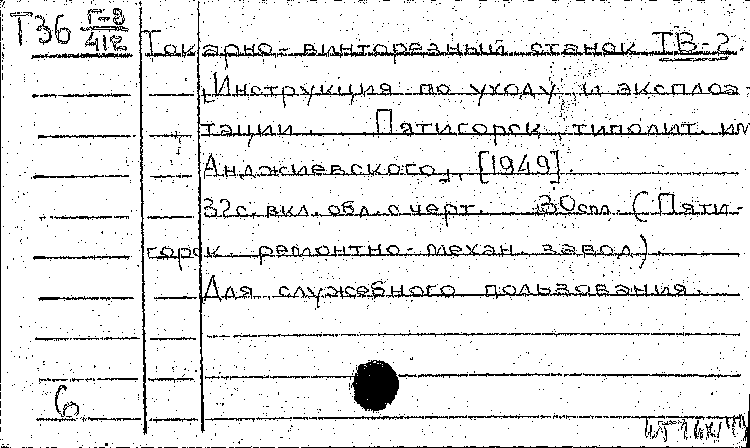 Т36 Г-9/412
Токарно-винторезный станок ТВ-2.
Инструкция по уходу и эксплоа-
тации. Пятигорск, типолит. им
Анджиевского, [1949].
32с. вкл. обл. с черт. (Пяти-
горск. ремонтно-механ. завод).
Для служебного пользования.
6